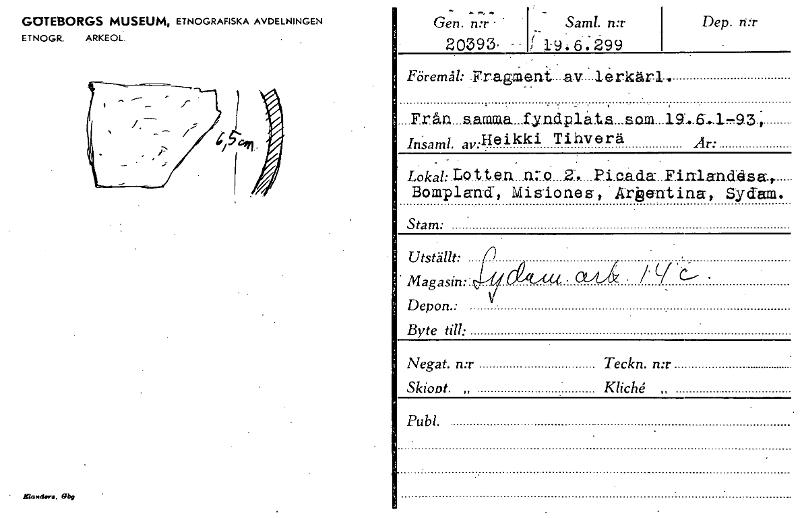 GÖTEBORGS MUSEUM, ETNOGRAFISKA AVDELNINGEN
ETNOGR. ARKEOL.
6,5 cm
Elanders, Gbg
Gen. n:r Saml. n:r Dep. n:r
20393 19.6.299
Föremål: Fragment av lerkärl.
Från samma fyndplats som 19.6.1-93,
Insaml. av: Heikki Tihverä År:
Lokal: Lotten n:o 2. Picada Finlandesa,
Bompland, Misiones, Argentina, Sydam.
Stam:
Utställt:
Magasin: Sydam. ark. 14 c.
Depon.:
Byte till:
Negat. n:r Teckn. n:r
Skiopt. „ Kliché „
Publ.